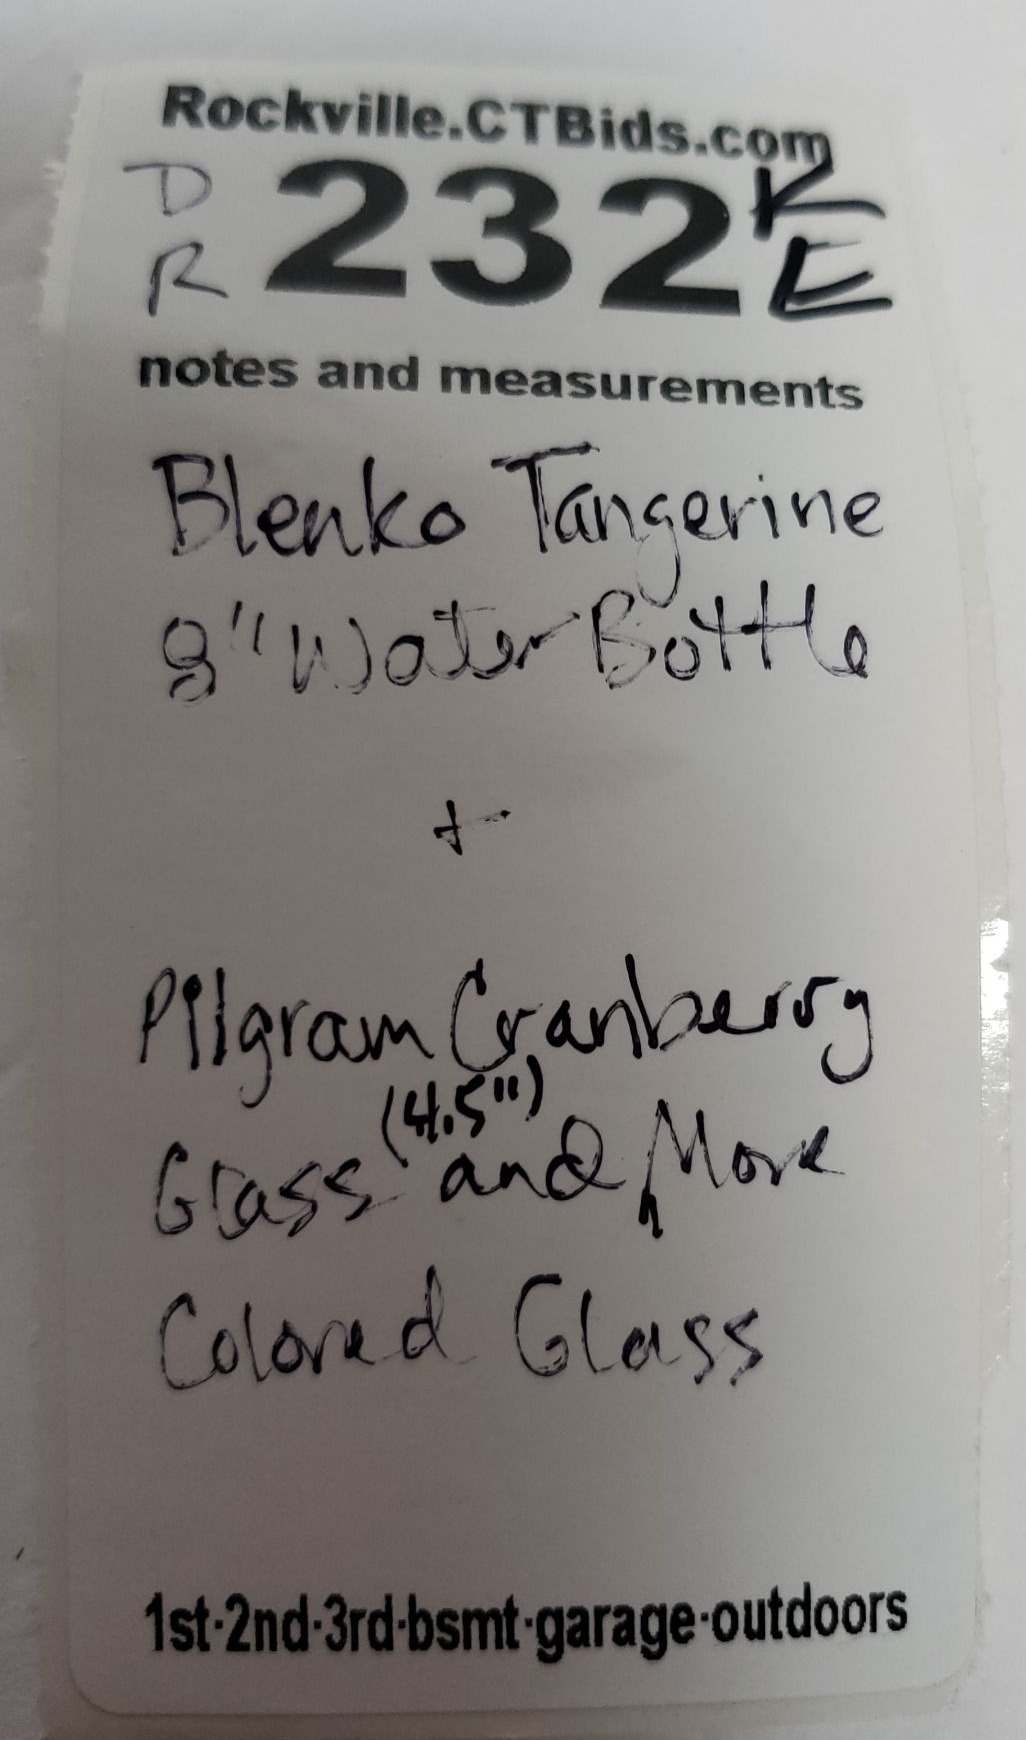 Rockville.CTBids.com
D 232 K
R E
notes and measurements
Blenko Tangerine
8" Water Bottle
+
Pilgram Cranberry
(4.5")
Glass and More
Colored Glass
1st·2nd·3rd·bsmt·garage·outdoors